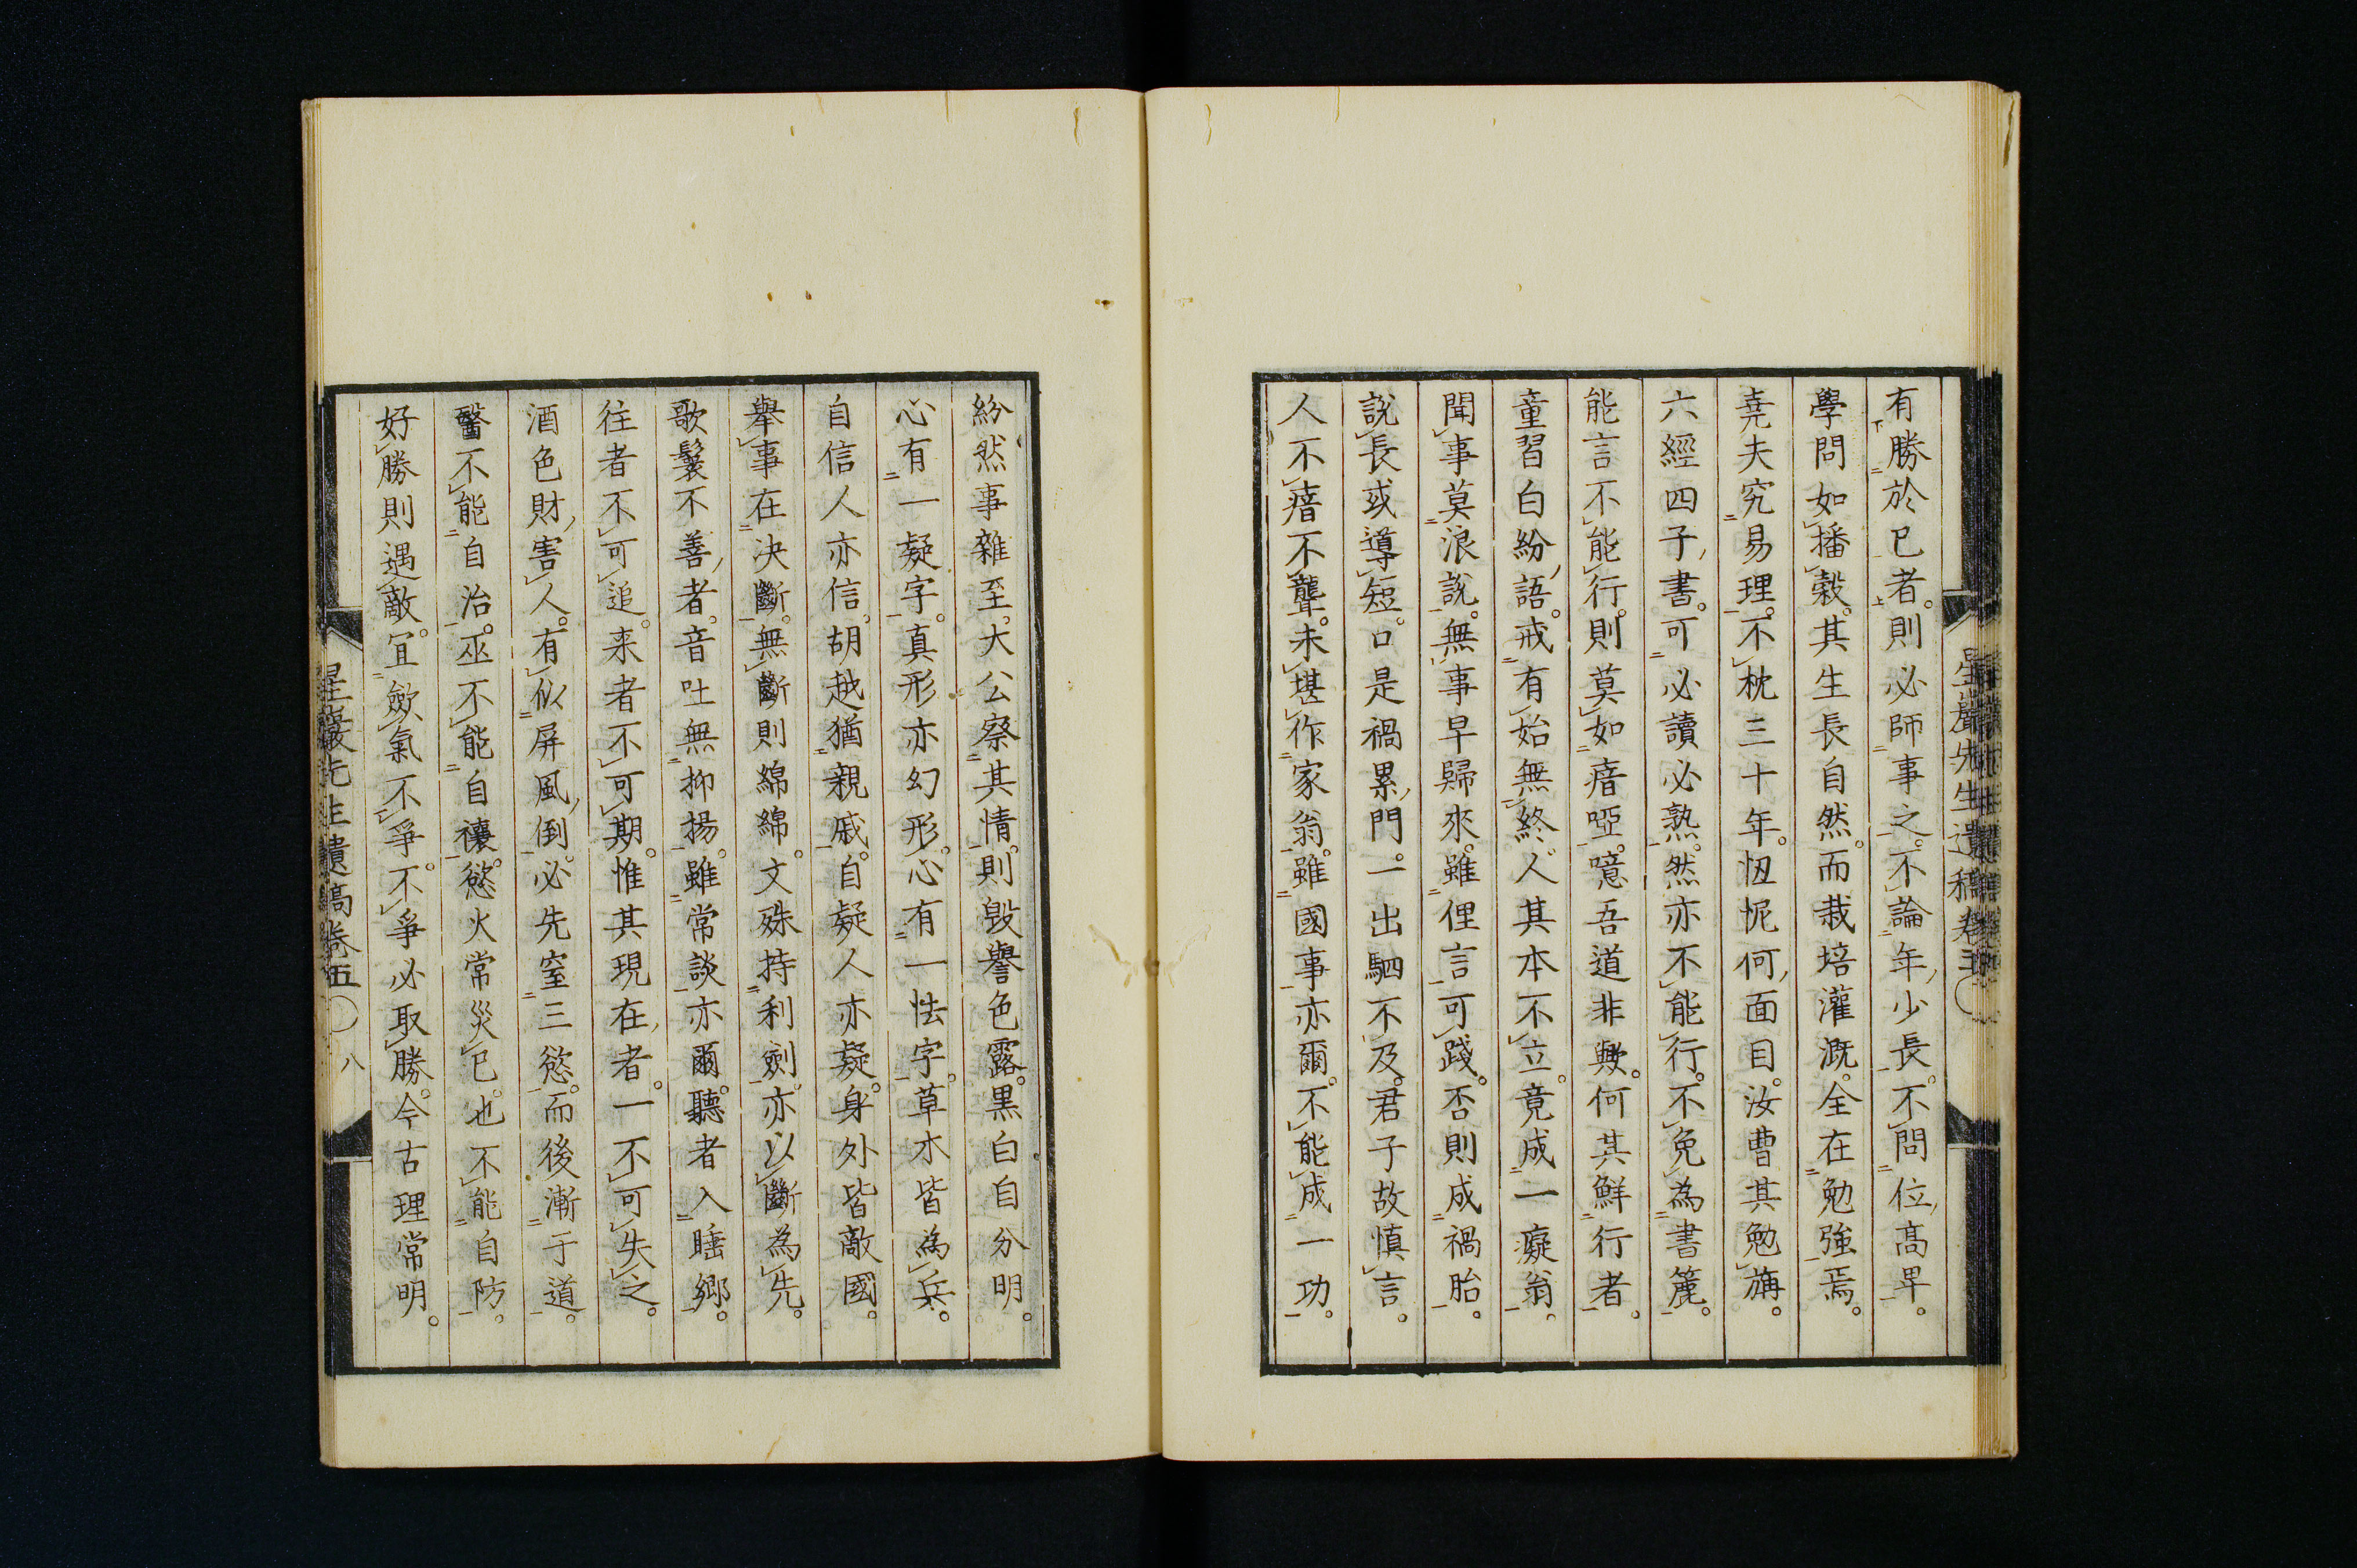 有勝於已者。則必師事之。不論年少長。不問位高卑。
學問如播穀。其生長自然。而栽培灌漑。全在勉強焉。
堯夫究易理。不枕三十年。忸怩何面目。汝曹其勉旃。
六經四子書。可必讀必熟。然亦不能行。不免為書簏。
能言不能行。則莫如瘖啞。噫吾道非歟。何其鮮行者。
童習白紛語。戒有始無終。人其本不立。竟成一癡翁。
聞事莫浪說。無事早歸來。雖俚言可踐。否則成禍胎。
說長或導短。口是禍累門。一出駟不及。君子故慎言。
人不瘖不聾。未堪作家翁。雖國事亦爾。不能成一功。
星巖先生遺稿卷五
紛然事雜至。大公察其情。則毀譽色露。黑白自分明。
心有一疑字。真形亦幻形。心有一怯字。草木皆為兵。
自信人亦信。胡越猶親戚。自疑人亦疑。身外皆敵國。
舉事在決斷。無斷則綿綿。文殊持利劍。亦以斷為先。
歌鬟不善者。音吐無抑揚。雖常談亦爾。聽者入睡鄉。
往者不可追。来者不可期。惟其現在者。一不可失之。
酒色財害人。有似屏風倒。必先窒三慾。而後漸于道。
醫不能自治。巫不能自禳。慾火常災已。也不能自防。
好勝則遇敵。宜斂氣不爭。不爭必取勝。今古理常明。
星巖先生遺稿卷五〇 八